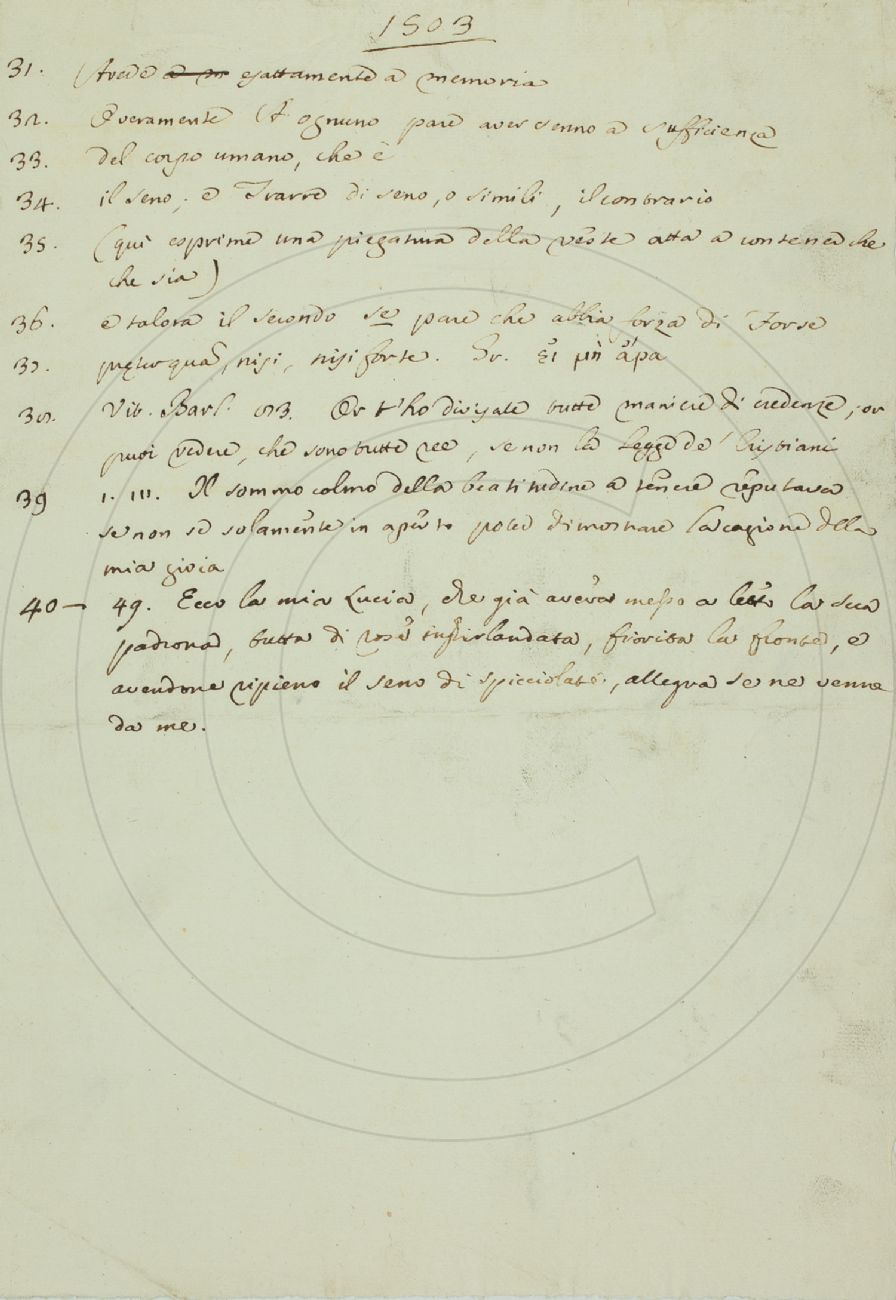 1503
31. esattamente a memoria
32. Overamente A ognuno pare aver senno a sufficienza
33. del corpo umano, che è
34. il seno; e Trarre di seno, o simili, il contrario
35. (qui esprime una piegatura della veste atta a contener che
che sia)
36. e talora il secondo se pare che abbia forza di Forse
37. præterquā, nisi, nisi forte. Gr. εἰ μὴ ἄρα
38. Vit. Barl. Or t'ho divisate tutte maniere di credenze, or
puoi vedere, che sono tutte ree, se non la legge de' Cristiani
39 1. 111. Il sommo colmo della beatitudine a tenere reputava
se non se solamente in aperto poter dimostrare la cagione della
mia gioia
40 - 49. Ecco la mia Lucia, che già aveva messo a letto la sua
padrona, tutta di rose inghirlandata, fiorita la fronte, e
avendone ripieno il seno di spicciolate, allegra se ne venne
da me.